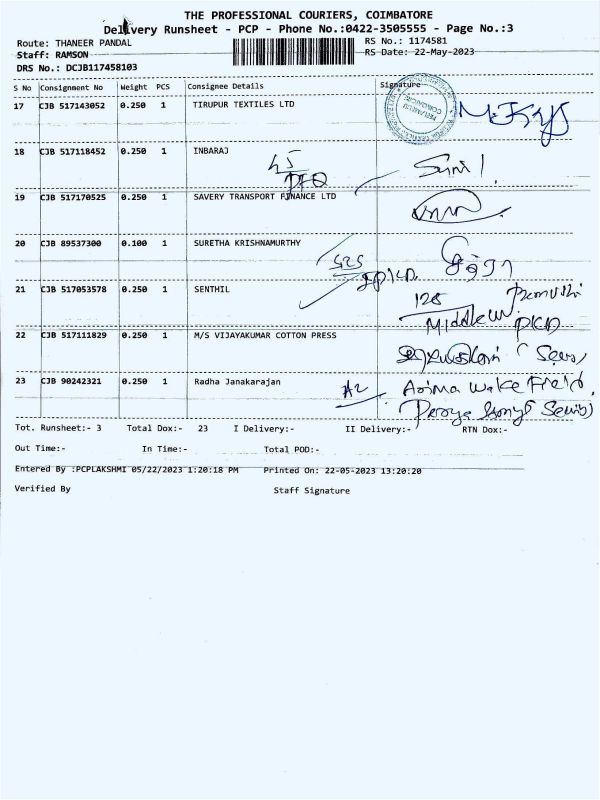 THE PROFESSIONAL COURIERS, COIMBATORE
Delivery Runsheet - PCP - Phone No.:0422-3505555 - Page No.:3
Route: THANEER PANDAL
RS No.: 1174581
Staff: RAMSON
RS Date: 22-May-2023
DRS No.: DCJB117458103
S No Consignment No Weight PCS Consignee Details Signature
17 CJB 517143052 0.250 1 TIRUPUR TEXTILES LTD
18 CJB 517118452 0.250 1 INBARAJ
45
19 CJB 517170525 0.250 1 SAVERY TRANSPORT FINANCE LTD
20 CJB 89537300 0.100 1 SURETHA KRISHNAMURTHY
21 CJB 517053578 0.250 1 SENTHIL
128
Middle
22 CJB 517111829 0.250 1 M/S VIJAYAKUMAR COTTON PRESS
23 CJB 90242321 0.250 1 Radha Janakarajan A2
Tot. Runsheet:- 3 Total Dox:- 23 I Delivery:- II Delivery:- RTN Dox:-
Out Time:- In Time:- Total POD:-
Entered By :PCPLAKSHMI 05/22/2023 1:20:18 PM Printed On: 22-05-2023 13:20:20
Verified By Staff Signature